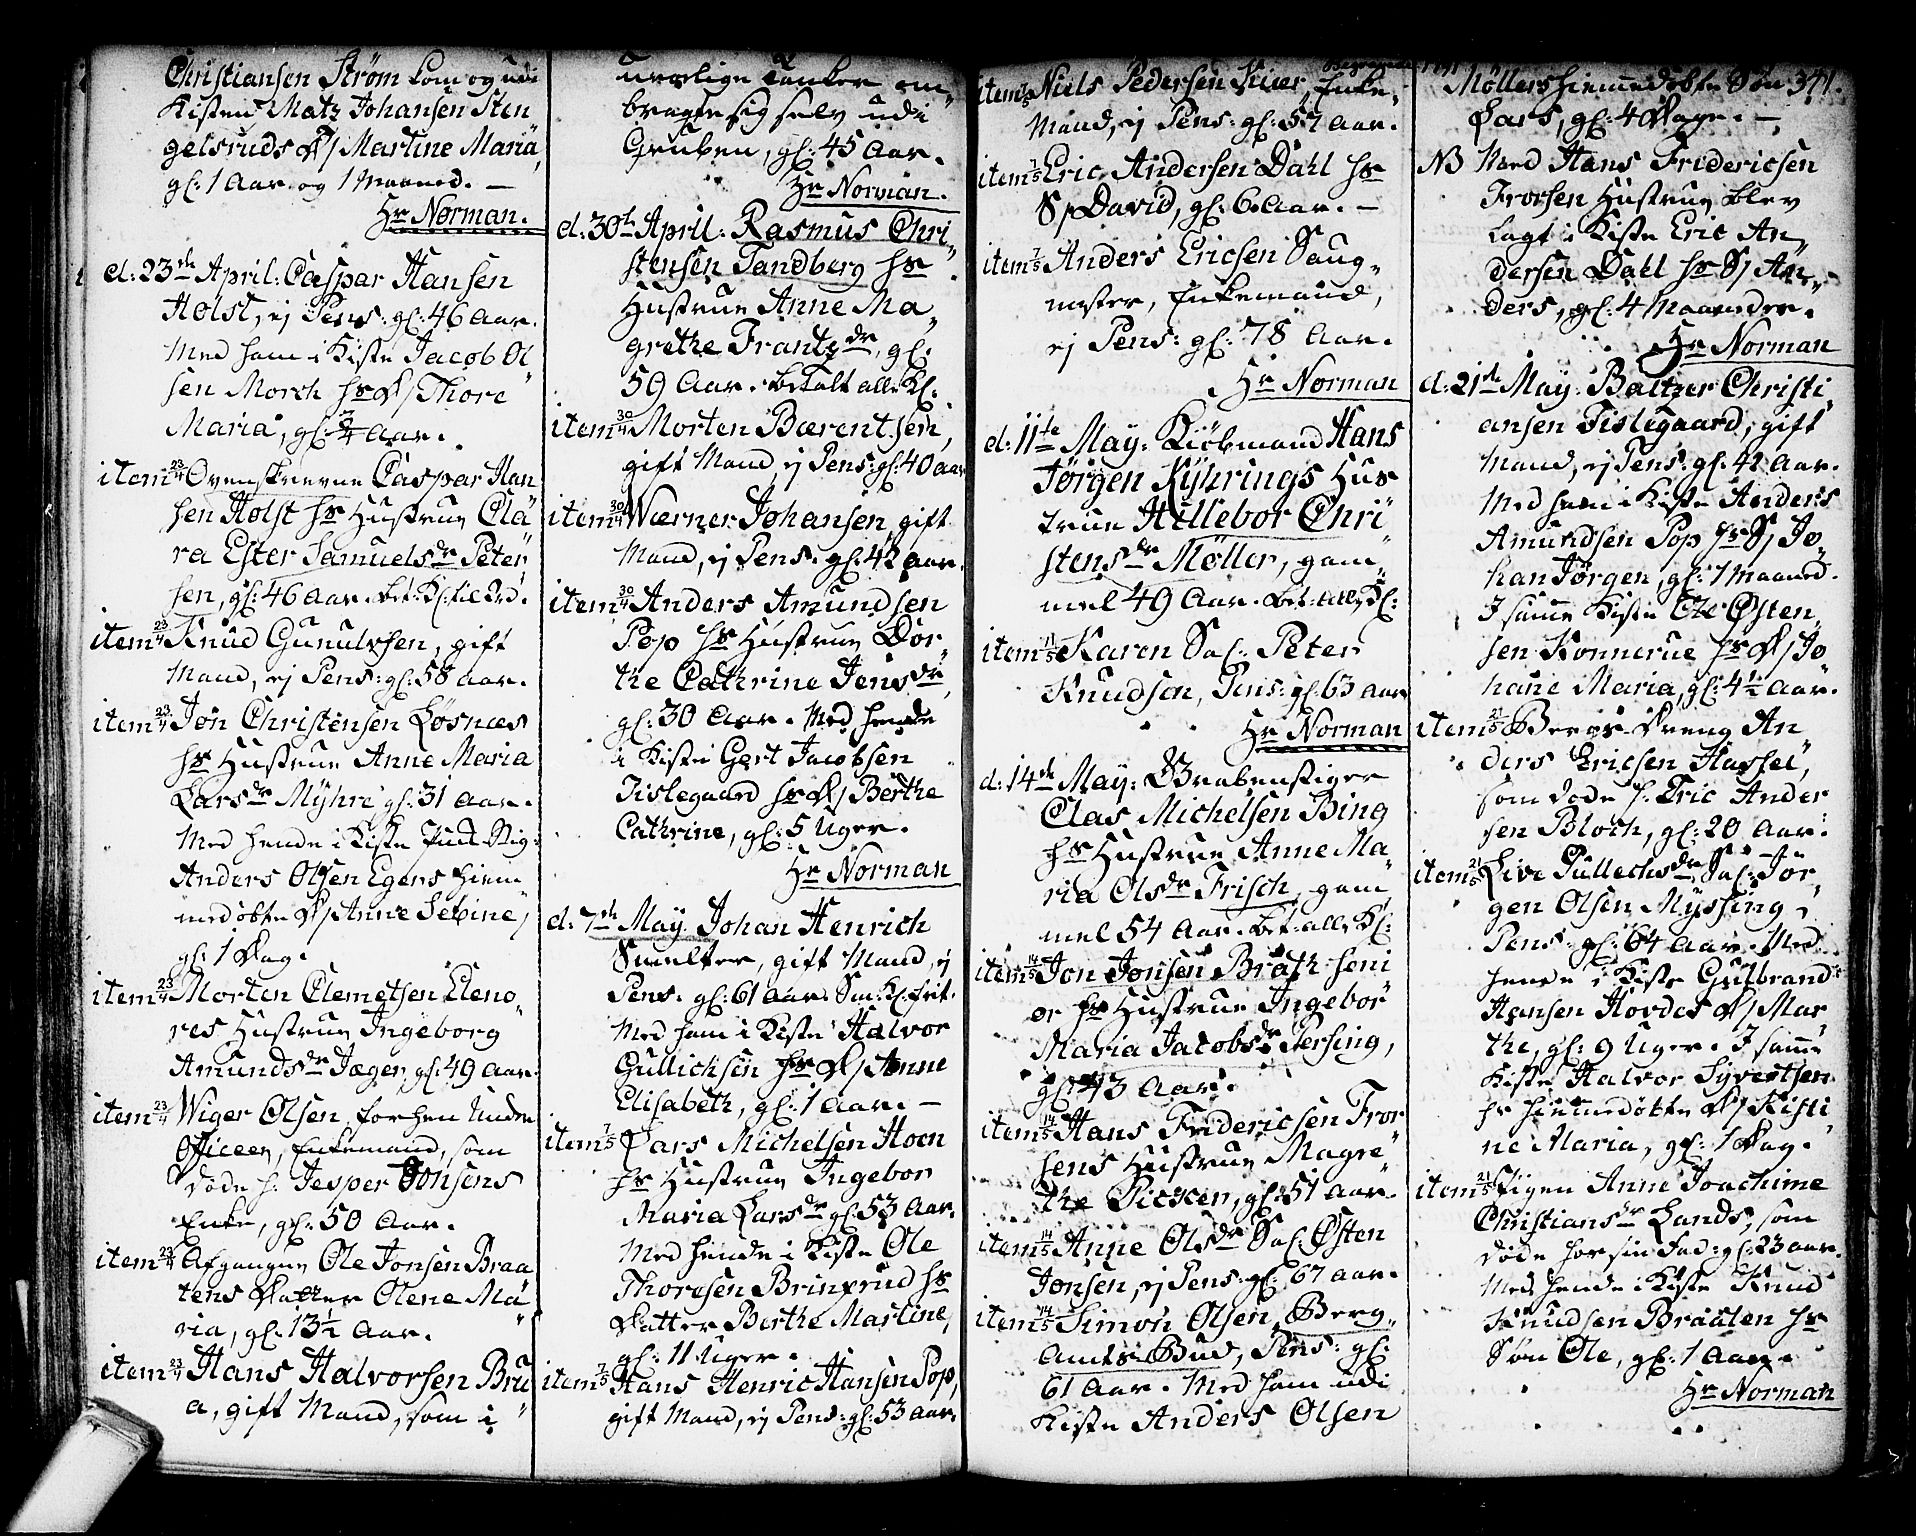 Christiansen Strøm kom og udi
Kisten Matz Johansen Sten
gelsruds D/ Martine Maria,
gl: 1 Aar og 1 Maaned. —
Hr Norman.
d: 23de April: Caspar Hansen
Holst, ej Pens: gl: 46 Aar.
Med ham i Kiste Jacob Ol
sen Morch hs D/ Thore
Maria, gl: 3/4 Aar.
item 23/4 Ovenskrevne Caspar Han
sen Holst hs Hustrue Cla
ra Ester Samuelsdr Peter
sen, gl: 46 Aar. bet: Kl: til Ord.
item 23/4 Knud Gunulvsen, gift
Mand, ej Pens: gl: 58 Aar.
item 23/4 Jon Christensen Løsnæs
hs Hustrue Anne Maria
Larsdr Myhre gl: 31 Aar.
Med hende i Kiste
Anders Olsen Egens hiem
medøbte D/ Anne Sebine,
gl: 1 Dag.
item 23/4 Morten Clemetsen Eleno
res Hustrue Ingeborg
Amundsdr Jæger, gl: 49 Aar.
item 23/4 Wiger Olsen, forhen Under
Officeer, Enkemand, som
døde h: Jesper Jonsens
Enke, gl: 50 Aar.
item 23/4 Afgangne Ole Jonsen Braa
tens Datter Olene Ma
ria, gl: 13½ Aar.
item 23/4 Hans Halvorsen Bru
a, gift Mand, som i
urolige Tanker om
bragte sig selv udi
Gruben, gl: 45 Aar.
Hr Norman.
d: 30te April: Rasmus Chri
stensen Tandberg hs
Hustrue Anne Ma
grethe Frantzdr, gl:
59 Aar. betalt alle Kl:
item 30/4 Morten Bærentsen,
gift Mand, ej Pens: gl: 40 Aar
item 30/4 Wærner Johansen, gift
Mand, ej Pens: gl: 42 Aar.
item 30/4 Anders Amundsen
Pop hs Hustrue Dor
the Cathrine Jensdr,
gl: 30 Aar. Med hende
i Kiste Gert Jacobsen
Tislegaard hs D/ Berthe
Cathrine, gl: 5 Uger.
Hr Norman
d: 7de May Johan Henrich
Smelter, gift Mand, ej
Pens: gl: 61 Aar. Sm: Kl: frit.
Med ham i Kiste Halvor
Gullichsen hs D/ Anne
Elisabeth, gl: 1 Aar. —
item 7/5 Lars Michelsen Hoen
hs Hustrue Ingebor
Maria Larsdr gl: 53 Aar.
Med hende i Kiste Ole
Thoresen Brinxrud hs
Datter Berthe Martine,
gl: 11 Uger.
item 7/5 Hans Henric Hansen Pop,
gift Mand, ej Pens: gl: 53 Aar.
Begravede 1791
item 7/5 Niels Pedersen, Enke
Mand, ej Pens: gl: 57 Aar.
item 7/5 Eric Andersen Dahl hs
S/ David, gl: 6 Aar. —
item 7/5 Anders Ericsen Saug
mester, Enkemand,
ej Pens: gl: 78 Aar.
Hr Norman
d: 11te May: Kiøbmand Hans
Jørgen Kyhrings Hus
true Hillebor Chri
stensdr Møller, gam
mel 49 Aar. bet: alle Kl:
item 11/5 Karen Sal: Peter
Knudsen, Pens: gl: 63 Aar
Hr Norman
d: 14de May: Grubenstiger
Clas Michelsen Bing
hs Hustrue Anne Ma
ria Olsdr Frisch, gam
mel 54 Aar. bet: alle Kl:
item 14/5 Jon Jonsen Bratz seni
or hs Hustrue Ingebor
Maria Jacobsdr Persing,
gl: 43 Aar.
item 14/5 Hans Fridericsen Fror
sens Hustrue Magre
the Picker, gl: 51 Aar.
item 14/5 Anne Olsdr Sal: Østen
Jonsen, ej Pens: gl: 67 Aar.
item 14/5 Simon Olsen, Berg
Amts Bud, Pens: gl:
61 Aar. Med ham udi
Kiste Anders Olsen
Møllers hiemmedøbte Søn 341.
Lars, gl: 4 Dage. —
NB Med Hans Fridericsen
Frorsen Hustrue blev
lagt i Kiste Eric An
dersen Dahl hs S/ An
ders, gl: 4 Maaneder.
Hr Norman
d: 21de May: Baltzer Christi
ansen Tislegaard, gift
Mand, ej Pens: gl: 42 Aar.
Med ham i Kiste Anders
Amundsen Pop hs S/ Jo
han Jørgen, gl: 1 Maaned.
I samme Kiste Ole Østen
sen Konnerue hs D/ Jo
hane Maria, gl: 4½ Aar.
item 21/5 Bergs Dreng An
ders Ericsen Hassel,
som døde h: Eric Ander
sen Bloch, gl: 20 Aar.
item 21/5 Live Tullechsdr Sal: Jør
gen Olsen Myssing,
Pens: gl: 64 Aar. Med
hende i Kiste Gulbrand
Hansen Hordes D/ Mar
the, gl: 9 Uger. I samme
Kiste Halvor Syvertsen
hs hiemmedøbte D/ Kisti
ne Maria, gl: 1 Dag.
item 21/5 Pigen Anne Joachime
Christiansdr Lands, som
døde hos sin Fad: gl: 23 Aar.
Med hende i Kiste Knud
Knudsen Braaten hs
Søn Ole, gl: 1 Aar.
Hr Norman